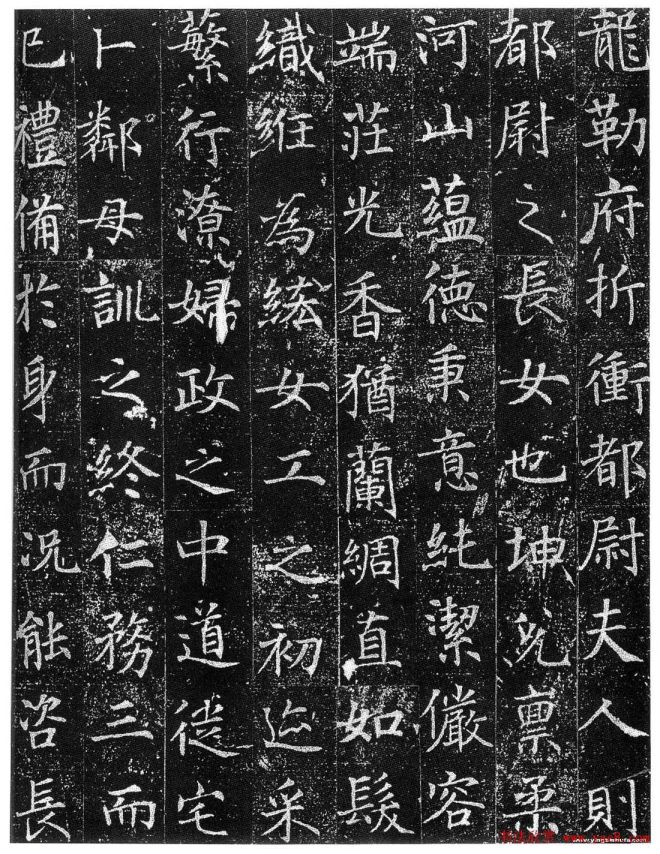 龍勒府折衝都尉夫人則
都尉之長女也坤皃禀柔
河山蘊德秉意純潔儼容
端莊光香猶蘭綢直如髮
織紝為紘女工之初迹采
蘩行潦婦政之中道徙宅
卜鄰母訓之終仁務三而
已禮備於身而況能咨長
www.yingbishufa.com